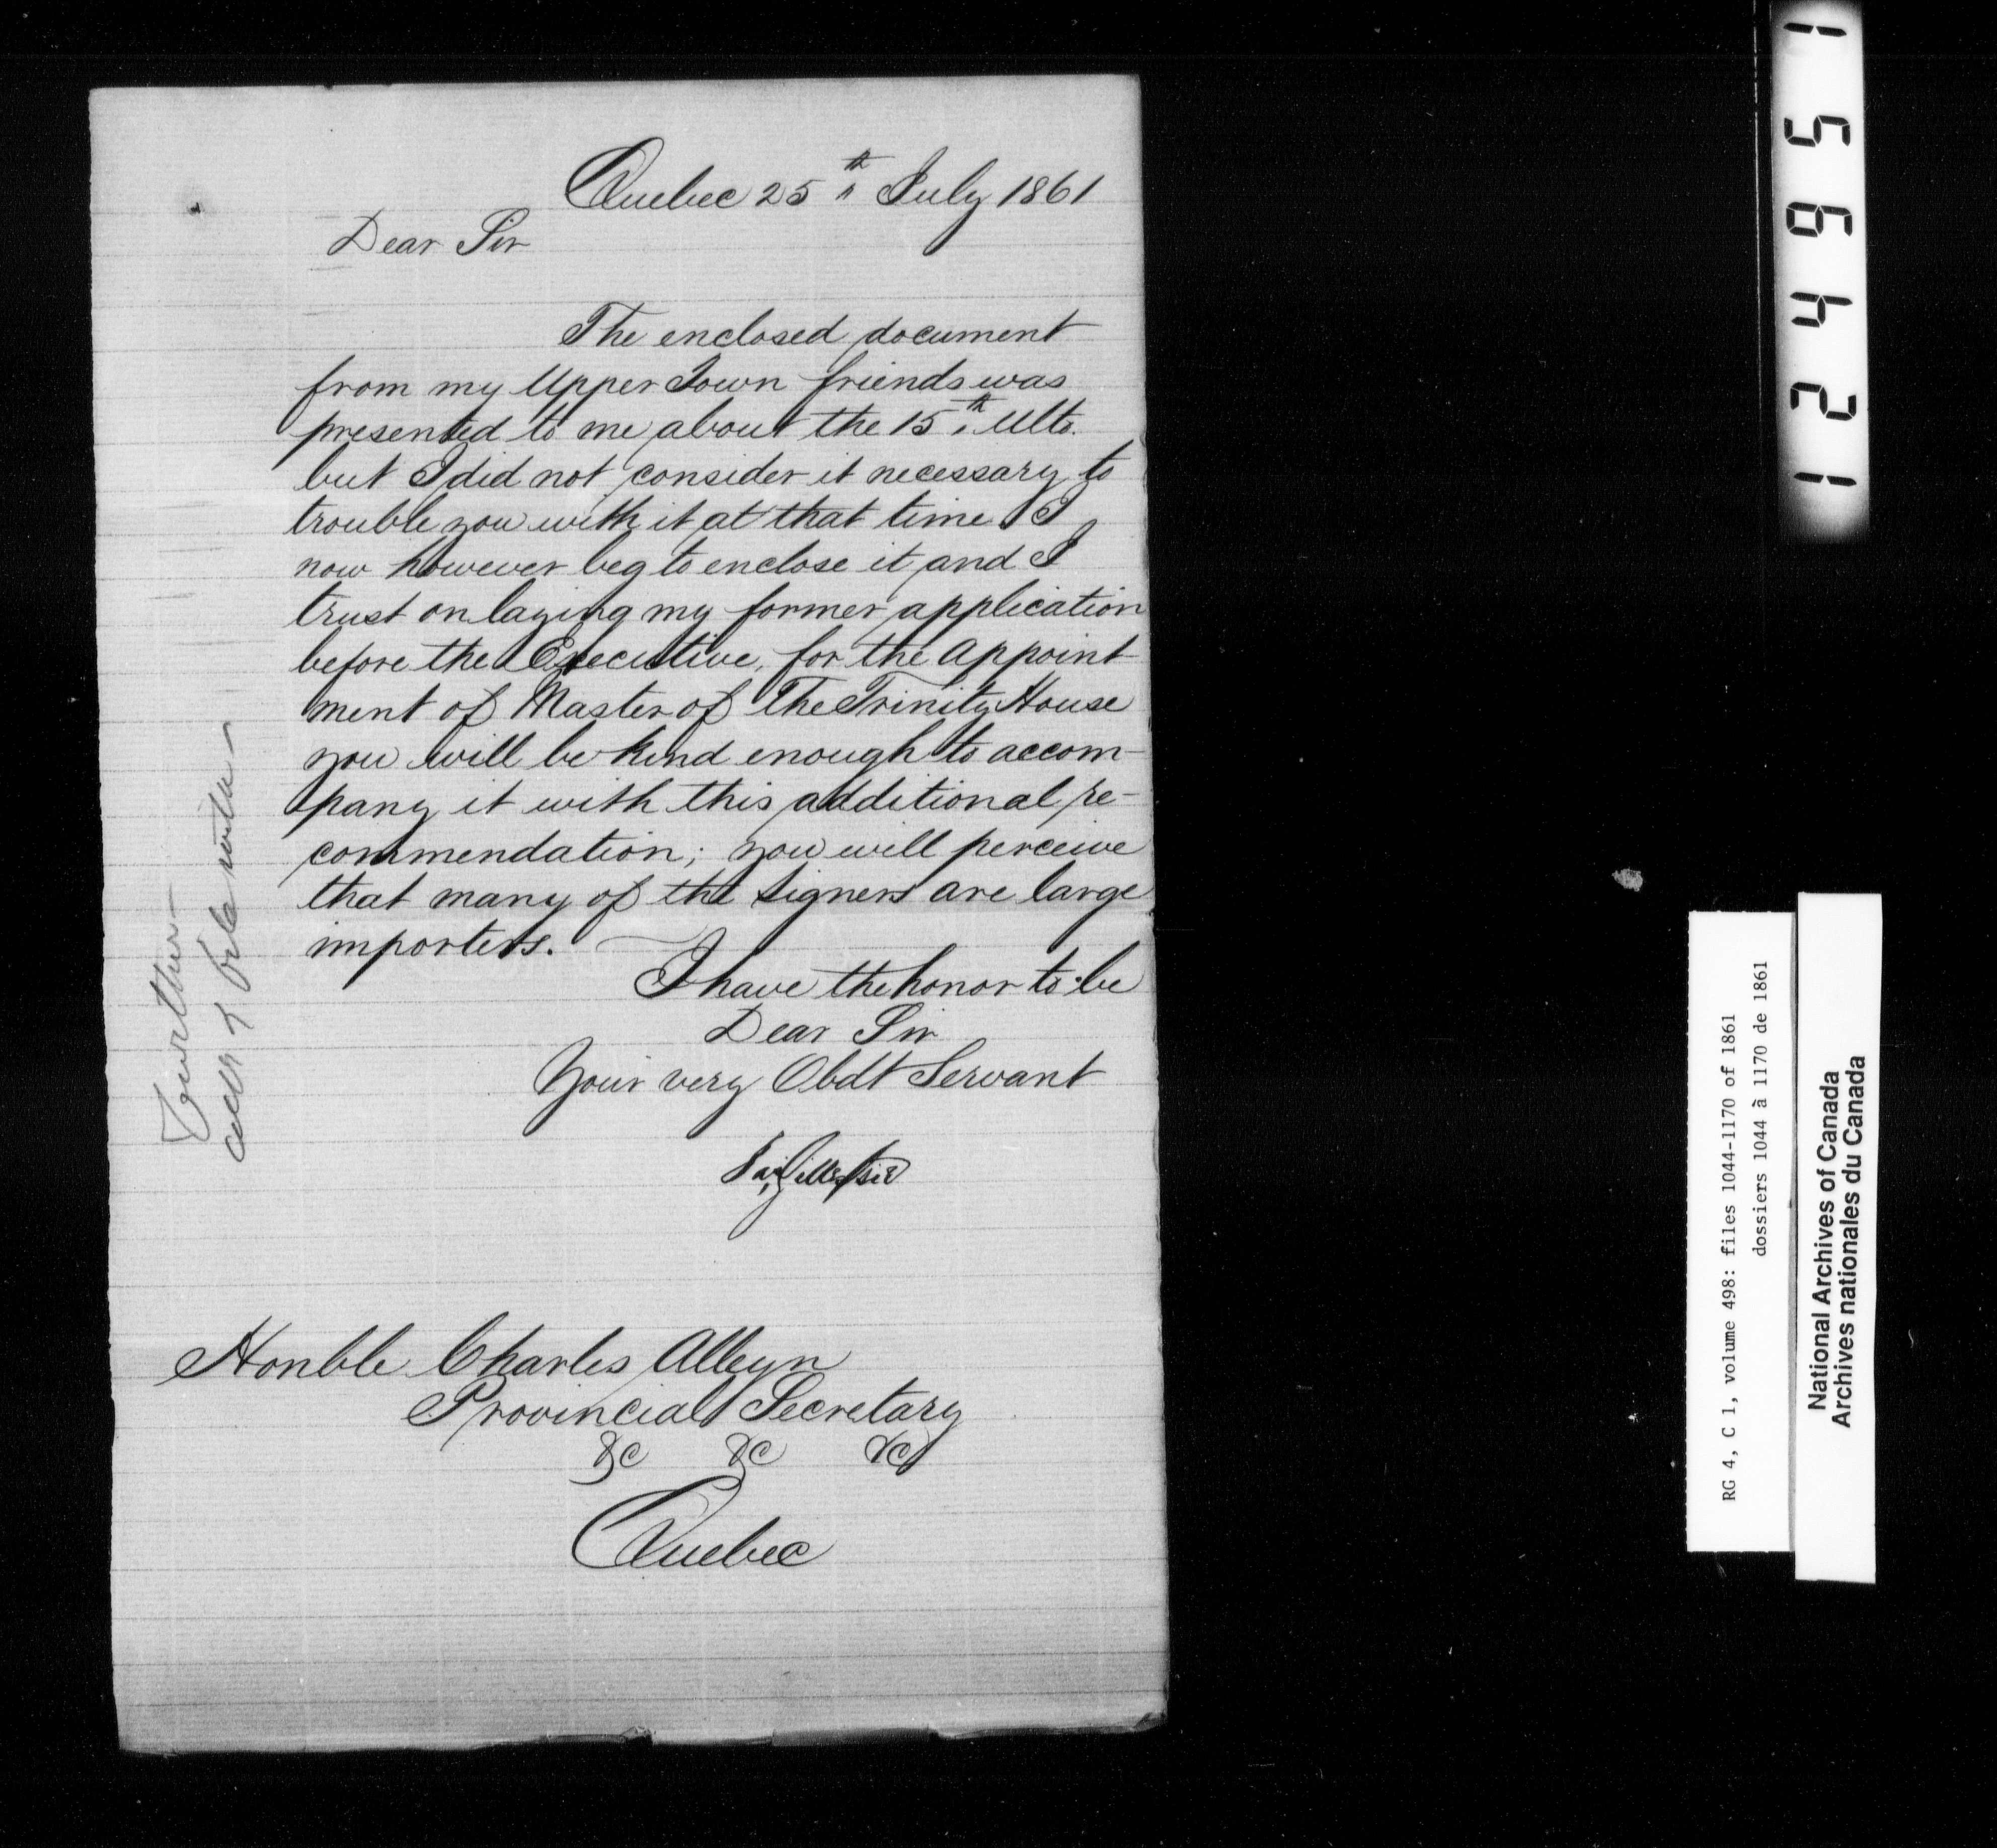 Quebec 25th July 1861
Dear Sir
The enclosed document
from my Upper Town friends was
presented to me about the 15th Ulto.
but I did not consider it necessary to
trouble you with it at that time. I
now however beg to enclose it and I
trust on laying my former application
before the Executive, for the appoint
ment of Master of The Trinity House
you will be kind enough to accom-
pany it with this additional re-
commendation; you will perceive
that many of the signers are large
importers.
I have the honor to be
Dear Sir
Your very Obdt Servant
Gillespie
Honble Charles Alleyn
Provincial Secretary
&c &c &c
Quebec
Further
124951
RG 4, C 1, volume 498: files 1044-1170 of 1861
dossiers 1044 à 1170 de 1861
National Archives of Canada
Archives nationales du Canada